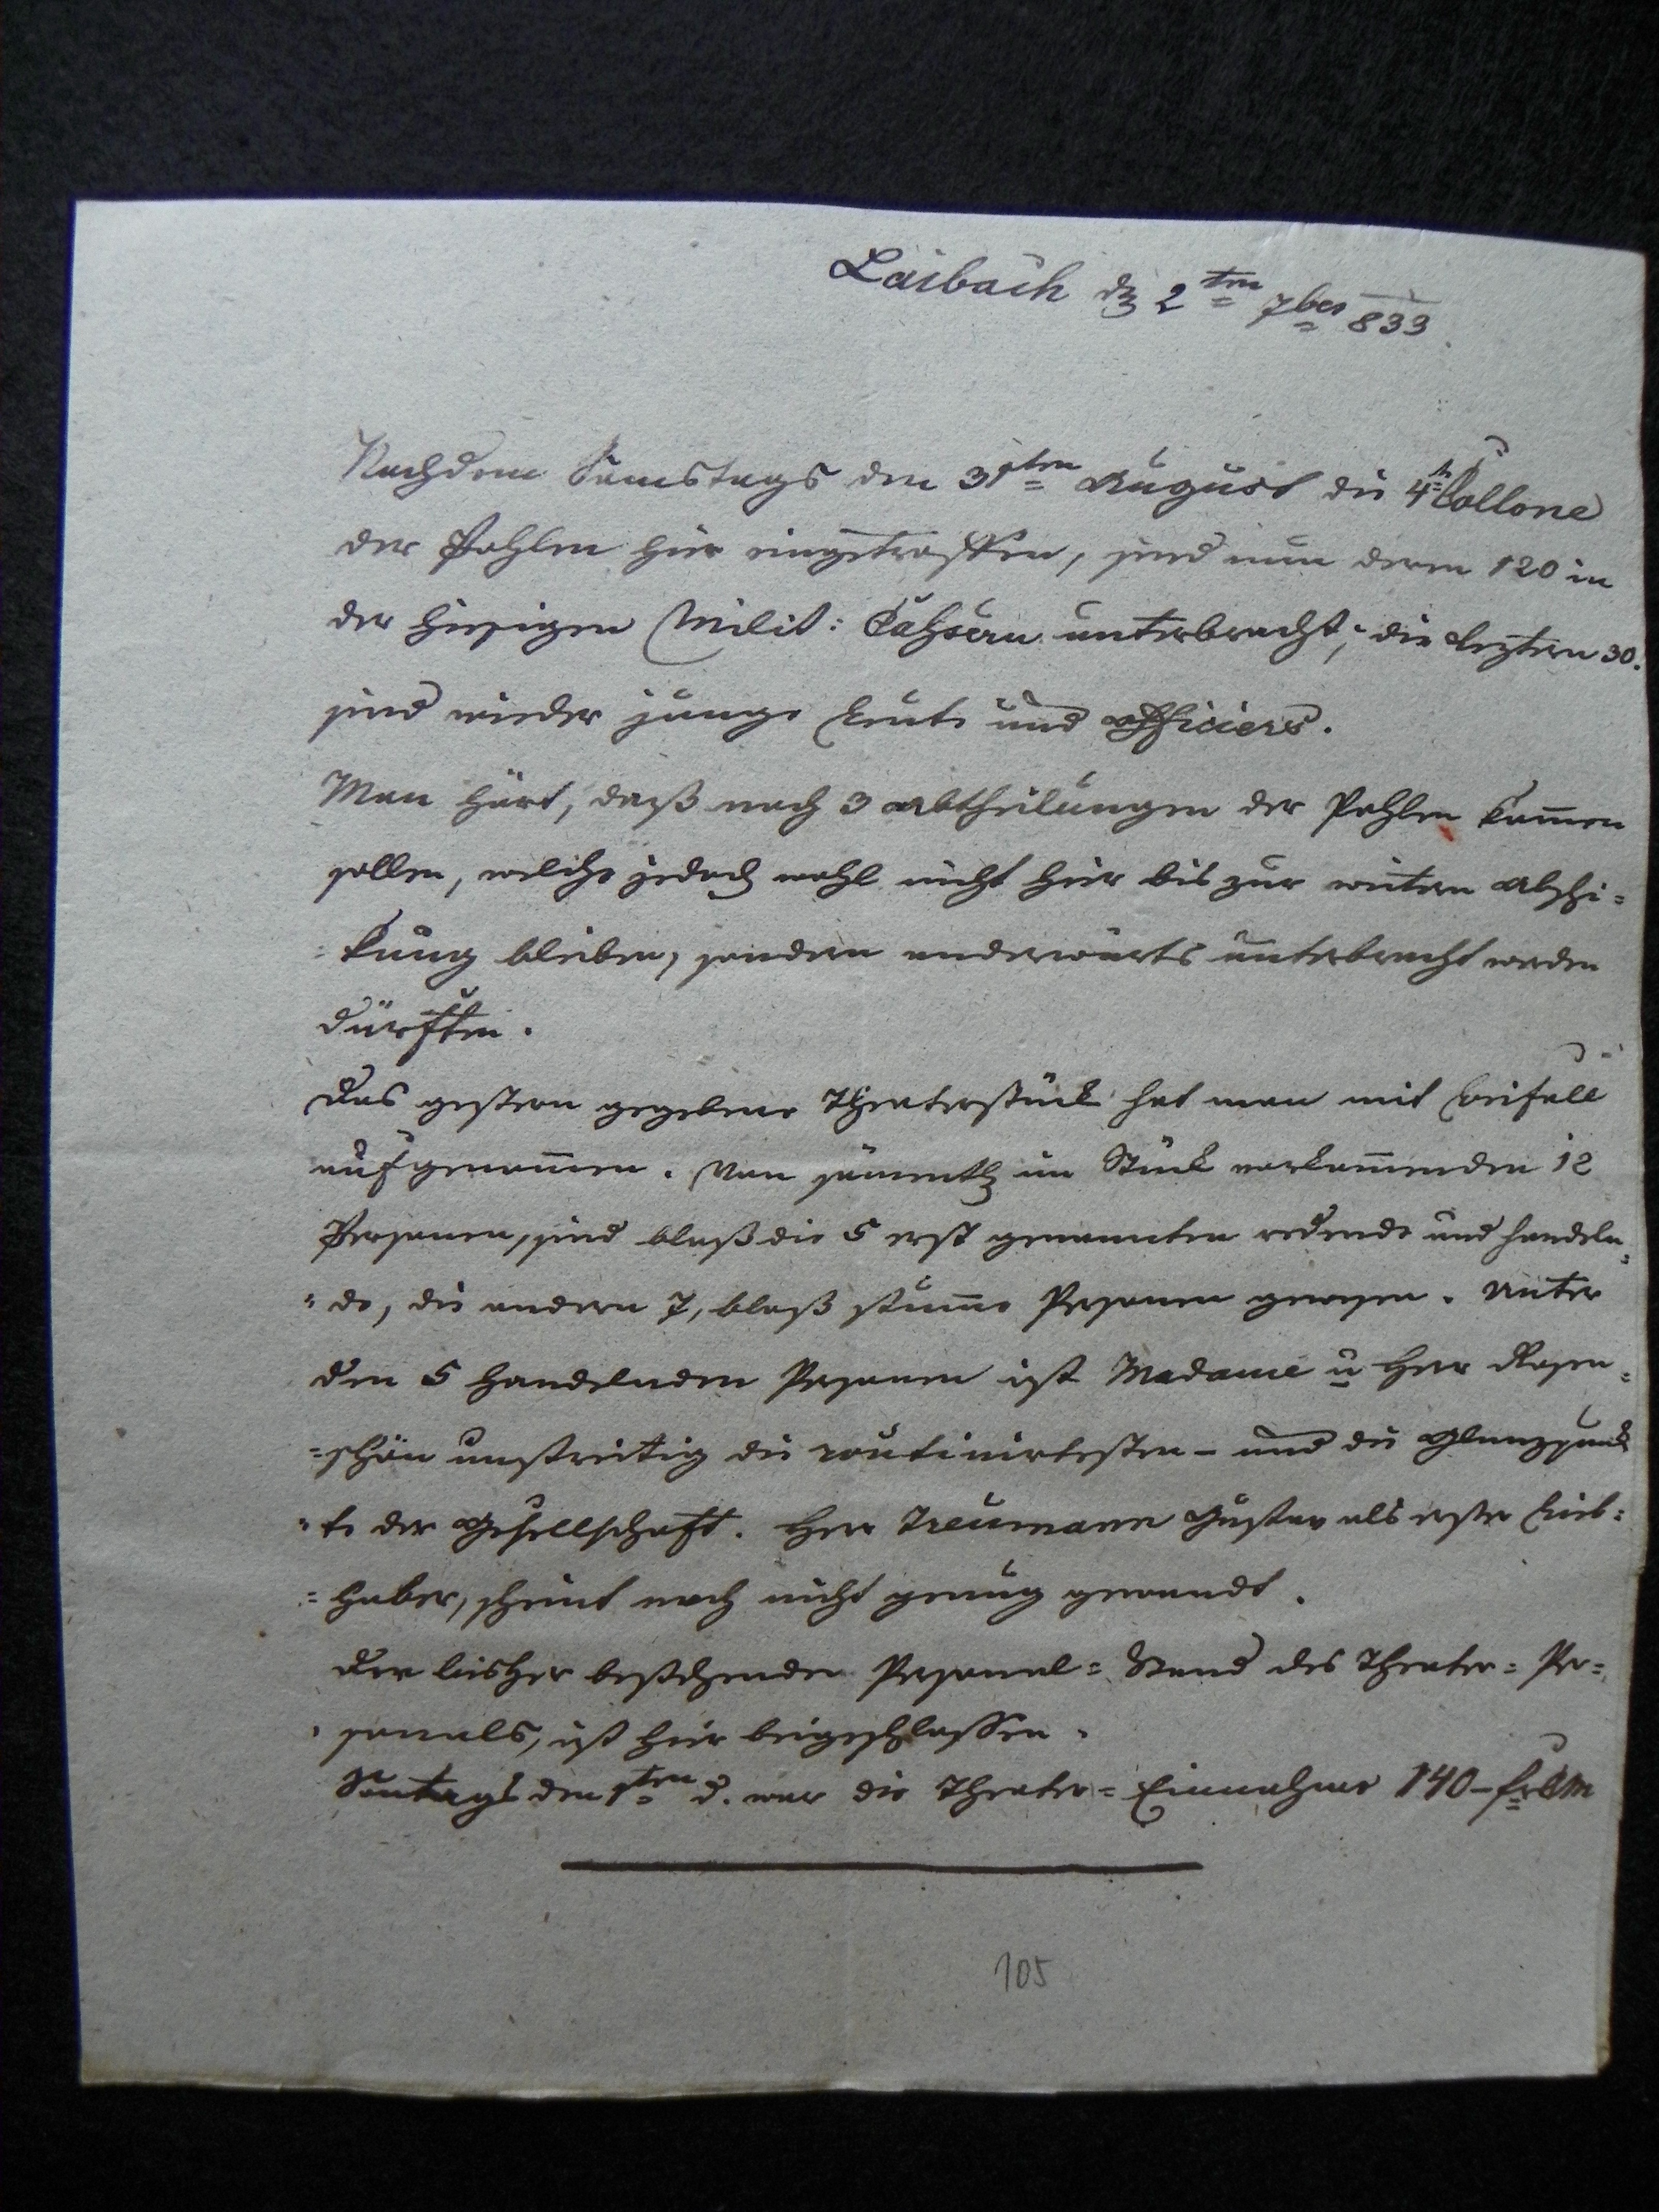 Laibach d 2ten 7ber 833.
Nachdem Samstags den 31ten August die 4te Collone
der Pohlen hier eingetroffen, sind nun deren 120 in
der hiesigen Milit: Cahsern unterbracht; die leztern 30.
sind wieder junge Leute und Officiers.
Man hört, daß noch 3 Abtheilungen der Pohlen kom̅en
sollen, welche jedoch wohl nicht hier bis zur weitern Abschi=
=kung bleiben, sondern anderwärts unterbracht werden
dürften.
Das gestern gegebene Theaterstück hat man mit Beifall
aufgenom̅en. Von sämmtl im Stück vorkom̅enden 12
Personen, sind bloß die 5 erst genannten redende und handeln=
=de, die andern 7, bloß stum̅e Personen gewesen. Unter
den 5 handelnden Personen ist Madame u Herr Rosen=
=schön unstreitig die routinirtesten – und die Glanzpunk
=te der Gesellschaft. Herr Treumann Gustav als erster Lieb=
=haber, scheint noch nicht genug gewandt.
Der bisher bestehende Personal=Stand des Theater=Per=
=sonals, ist hier beigeschlossen.
Sontags den 1ten d. war die Theater=Einnahme 140 – f CM
105